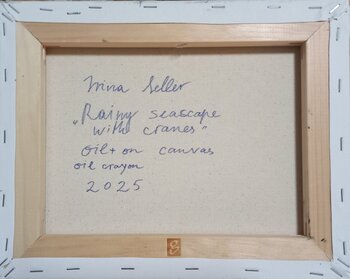 Irina Seller
„Rainy seascape
with cranes"
oil + on canvas
oil crayon
2025